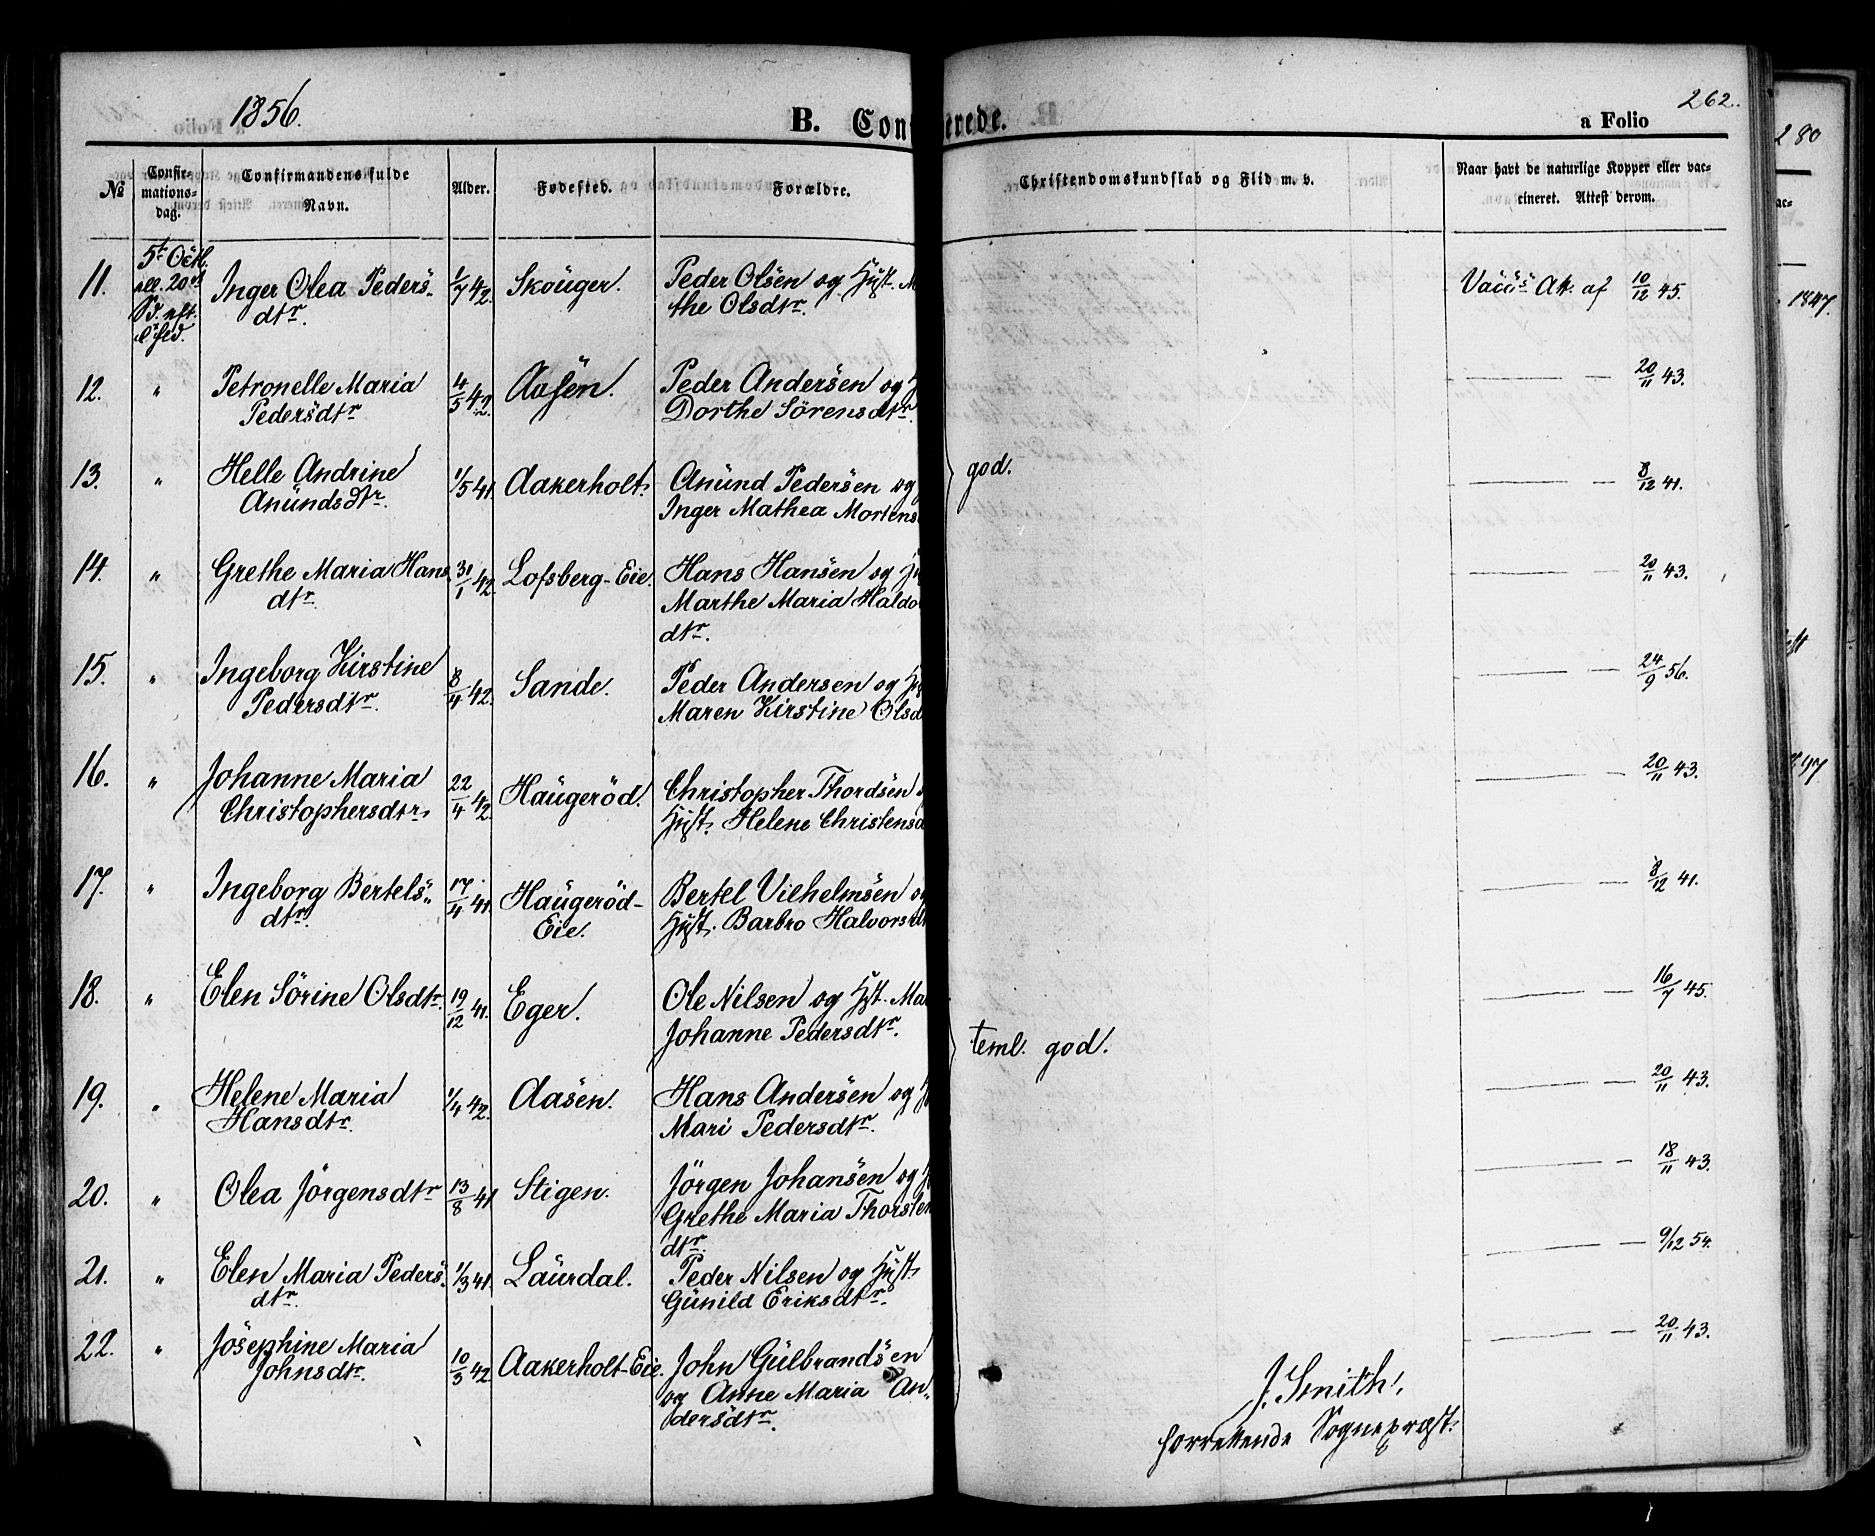 1856.
B. Conf
erede.
262.
a Folio
280
№
Confirmationsdag.
Confirmandens fulde Navn.
Alder.
Fødested.
Forældre.
Christendomskundskab og Flid m. v.
Naar havt de naturlige Kopper eller vaccineret. Attest derom.
11. 5te Octb. Inger Olea Peders- 1/7 42. Skouger. Peder Olsen og Hust. M Vacc. Att. af 10/12 45.
20de dtr. the Olsdtr. 1847.
12. " Petronelle Maria 4/5 42. Aasen. Peder Andersen og H — — 20/11 43.
Pedersdtr. Dorthe Sörensdtr.
13. " Helle Andrine 1/5 41. Aakerholt. Anund Pedersen og god. — — 8/12 41.
Anundsdtr. Inger Mathea Mortens
14. " Grethe Maria Hans 31/1 42. Lofsberg-Eie. Hans Hansen og Hu — — 20/11 43.
dtr. Marthe Maria Haldo
dtr.
15. " Ingeborg Kirstine 8/4 42. Sande. Peder Andersen og Hu — — 24/9 56.
Pedersdtr. Maren Kirstine Olsd
16. " Johanne Maria 22/4 42. Haugeröd. Christopher Thordsen — — 20/11 43.
Christophersdtr. Hust. Helene Christensd
17. " Ingeborg Bertels- 17/4 41. Haugeröd- Bertel Vilhelmsen og — — 8/12 41.
dtr. Eie. Hust. Barbro Halvorsdt
18. " Elen Sörine Olsdtr. 19/12 41. Eger. Ole Nilsen og Hst. Mar — — 16/7 45.
Johanne Pedersdtr. teml. god.
19. " Helene Maria 1/4 42. Aasen. Hans Andersen og H — — 20/11 43.
Hansdtr. Mari Pedersdtr.
20. " Olea Jörgensdtr 13/8 41 Stigen. Jörgen Johansen og H — — 18/11 43.
Grethe Maria Thorsten
dtr.
21. " Elen Maria Peders- 1/3 41. Laurdal. Peder Nilsen og Hust. — — 9/12 54.
dtr. Gunild Eriksdtr.
22. " Josephine Maria 10/3 42 Aakerholt-Eie. John Gulbrandsen — — 20/11 43.
Johnsdtr. og Anne Maria An-
dersdtr.
J. Smith,
forrettende Sognepræst.